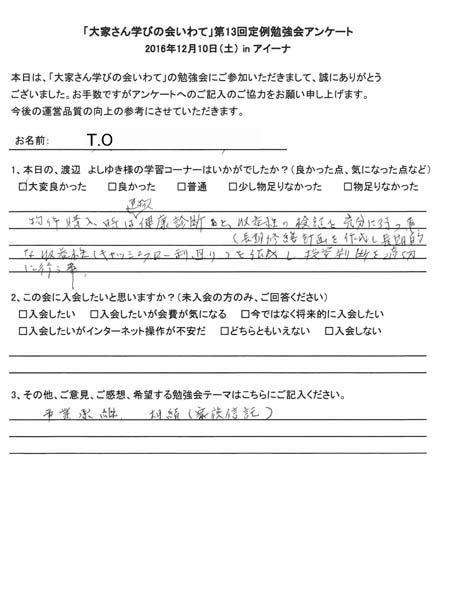 「大家さん学びの会いわて」第13回定例勉強会アンケート
2016年12月10日(土) in アイーナ
本日は、「大家さん学びの会いわて」の勉強会にご参加いただきまして、誠にありがとう
ございました。お手数ですがアンケートへのご記入のご協力をお願い申し上げます。
今後の運営品質の向上の参考にさせていただきます。
お名前: T.O
1、本日の、渡辺 よしゆき様の学習コーナーはいかがでしたか?(良かった点、気になった点など)
□大変良かった □良かった □普通 □少し物足りなかった □物足りなかった
建物
物件購入時は健康診断と、収益性の検証を充分に行う事
(長期修繕計画を作成し長期的
な収益性(キャッシュフロー利回り)を作成し投資判断を適切
に行う事
2、この会に入会したいと思いますか?(未入会の方のみ、ご回答ください)
□入会したい □入会したいが会費が気になる □今ではなく将来的に入会したい
□入会したいがインターネット操作が不安だ □どちらともいえない □入会しない
3、その他、ご意見、ご感想、希望する勉強会テーマはこちらにご記入ください。
事業承継 相続(家族信託)